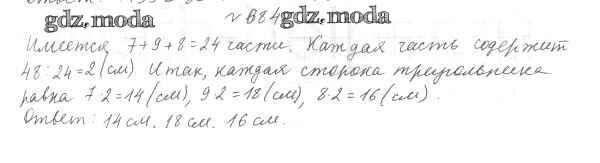 gdz.moda № 884 gdz.moda
Имеется 7+9+8=24 части. Каждая часть содержит
48:24=2 (см) Итак, каждая сторона треугольника
равна 7·2=14 (см), 9·2=18 (см), 8·2=16 (см).
Ответ: 14 см. 18 см. 16 см.